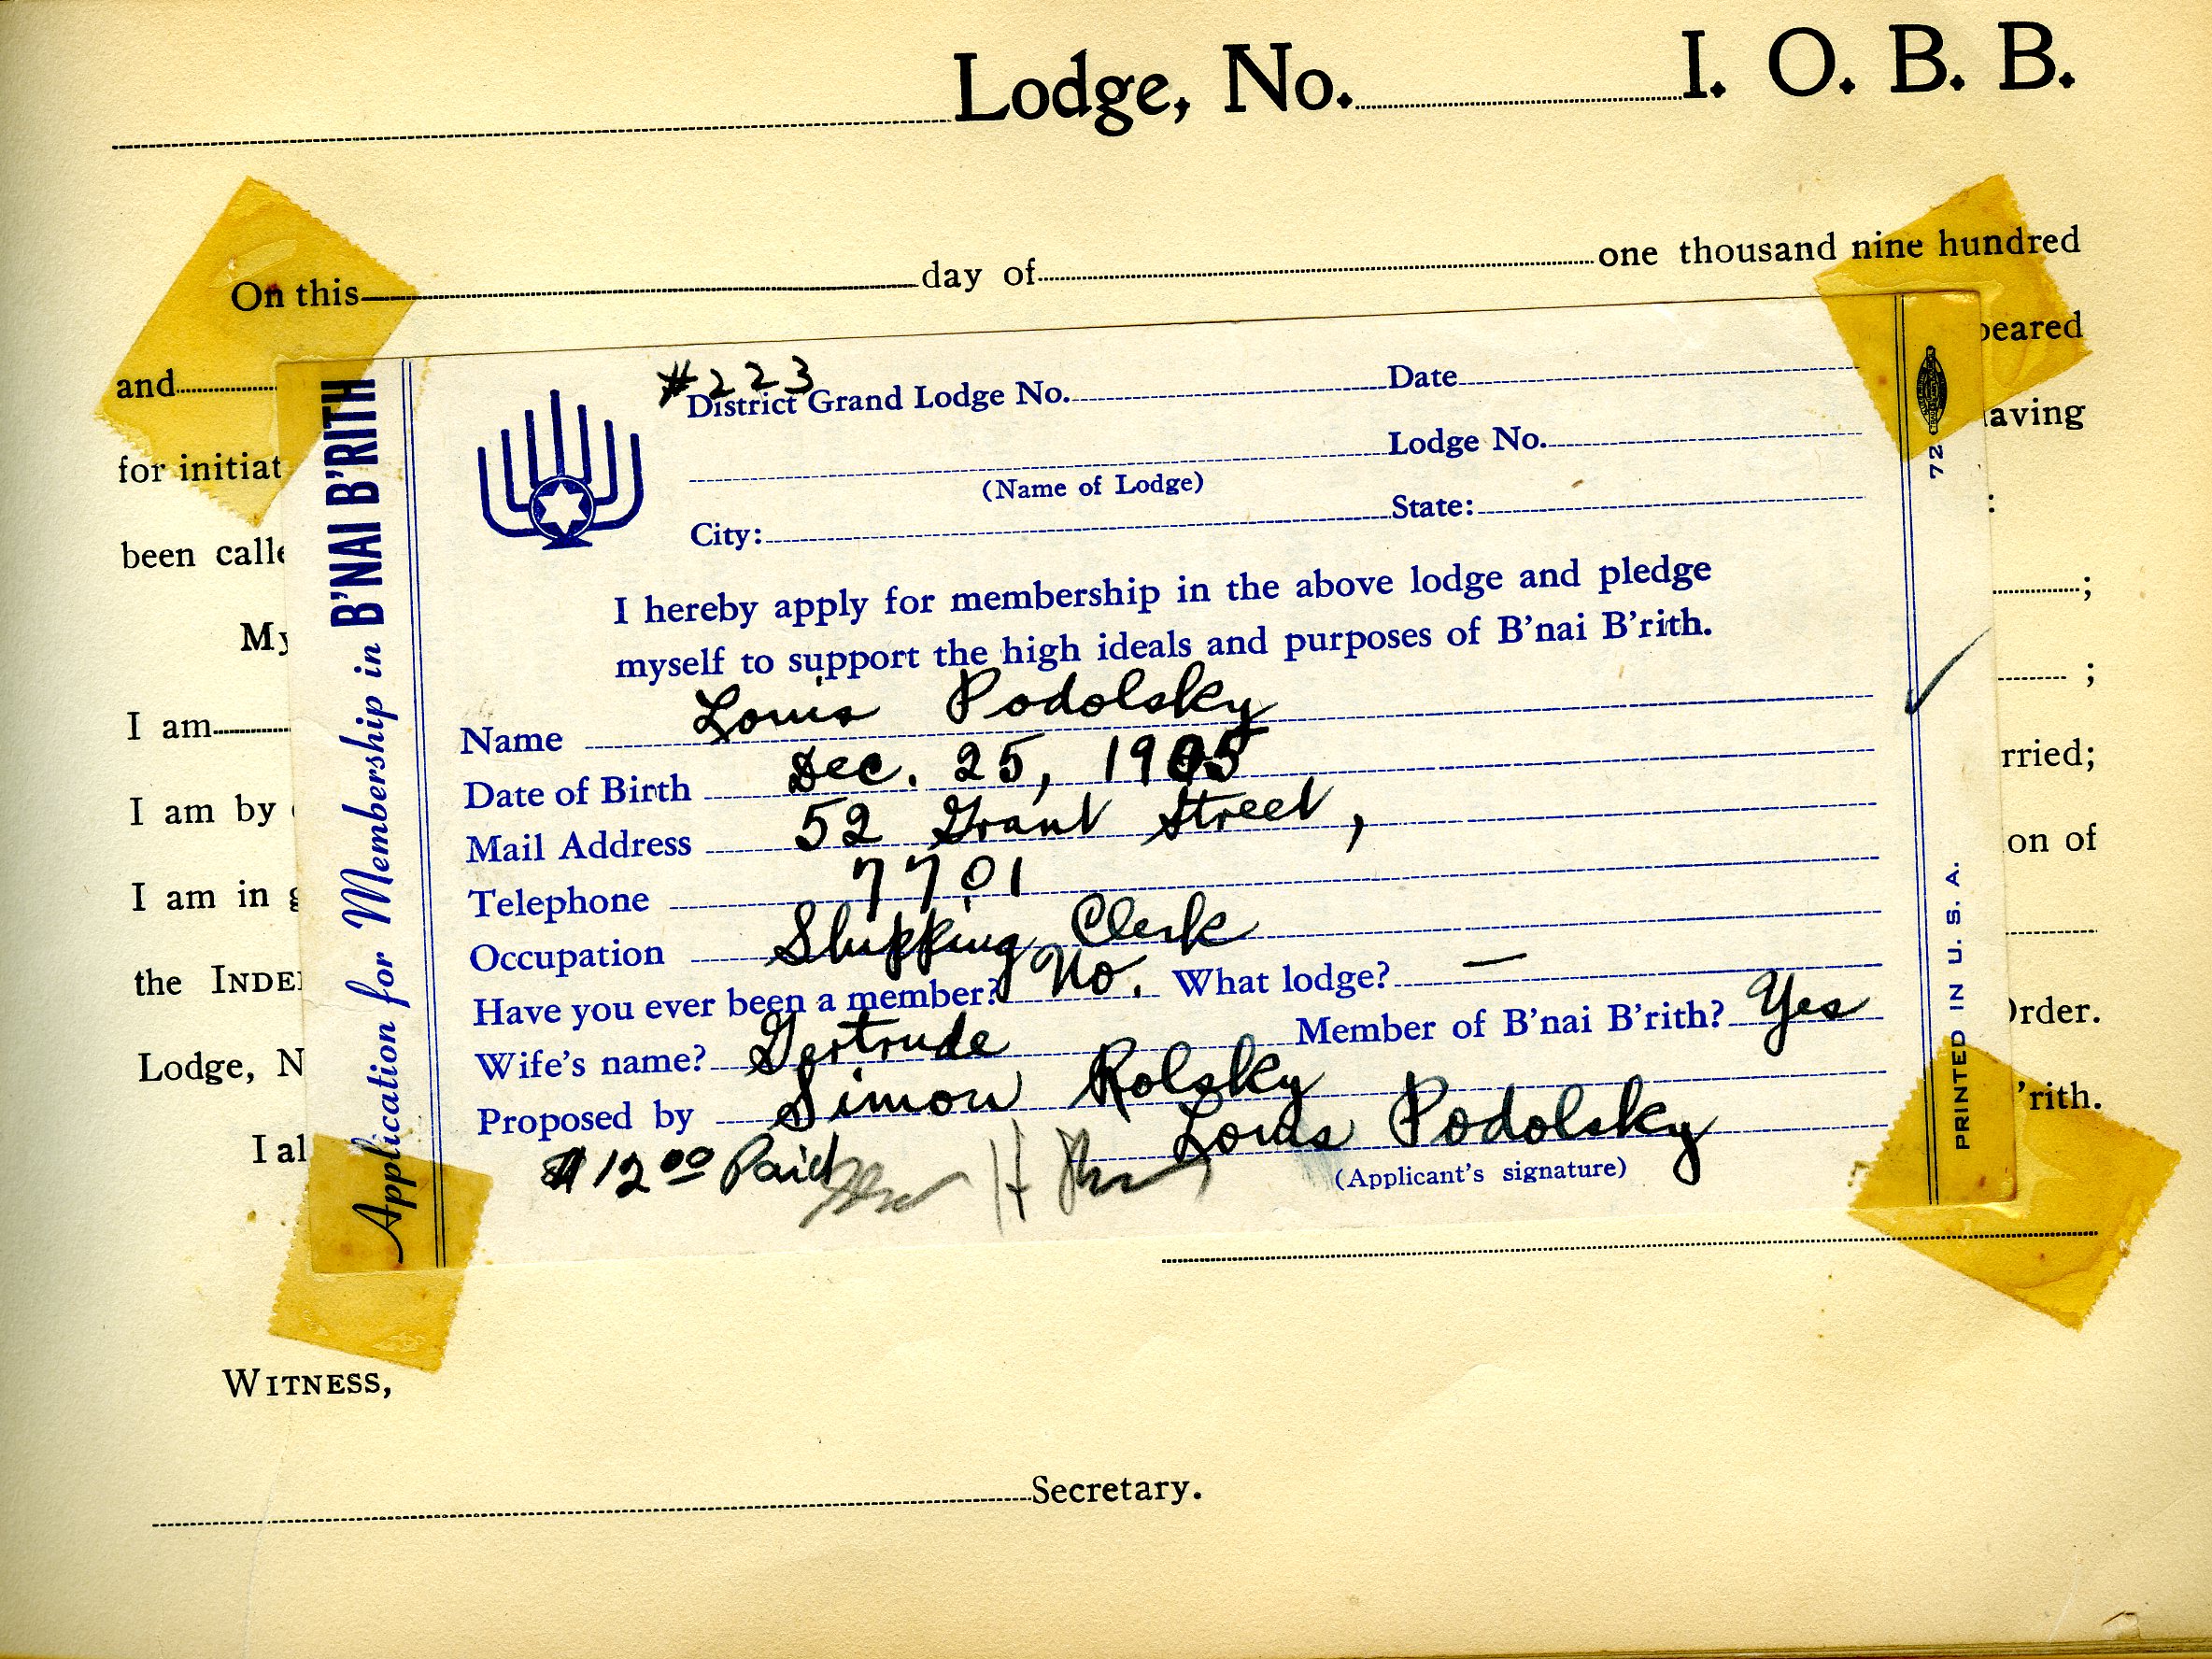 Lodge, No. I. O. B. B.
On this day of one thousand nine hundred
and peared
for initiat aving
been calle :
My ;
I am ;
I am by rried;
I am in g on of
the INDE
Lodge, N Order.
I al 'rith.
Application for Membership in B'NAI B'RITH
#223
District Grand Lodge No. Date
Lodge No.
(Name of Lodge)
City: State:
I hereby apply for membership in the above lodge and pledge
myself to support the high ideals and purposes of B'nai B'rith.
Name Louis Podolsky
Date of Birth Dec. 25, 1905
Mail Address 52 Grant Street,
Telephone 7701
Occupation Shipping Clerk
Have you ever been a member? No. What lodge? —
Wife's name? Gertrude Member of B'nai B'rith? Yes
Proposed by Simon Rolsky
Louis Podolsky
$12.00 Paid
(Applicant's signature)
72
PRINTED IN U. S. A.
WITNESS,
Secretary.